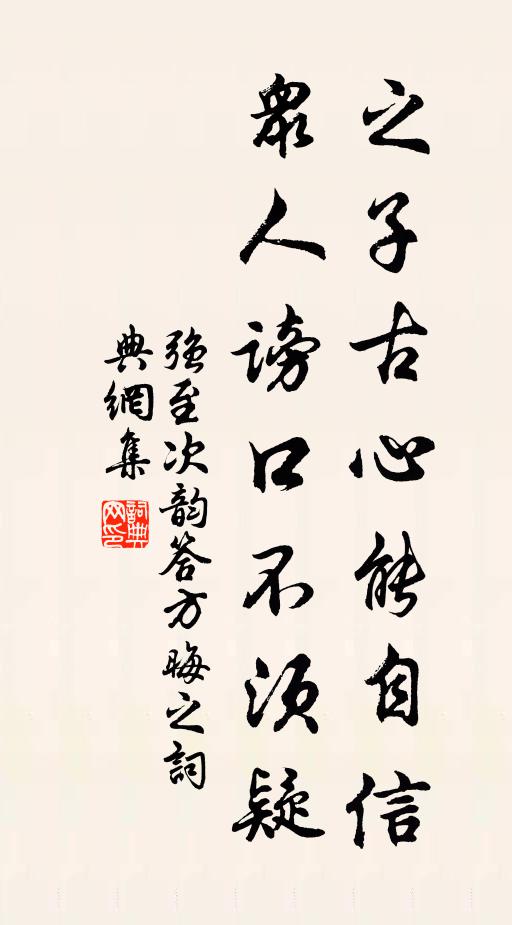 之子古心能自信
眾人謗口不須疑
強至次韵答方晦之詞
典網集
詞典網印